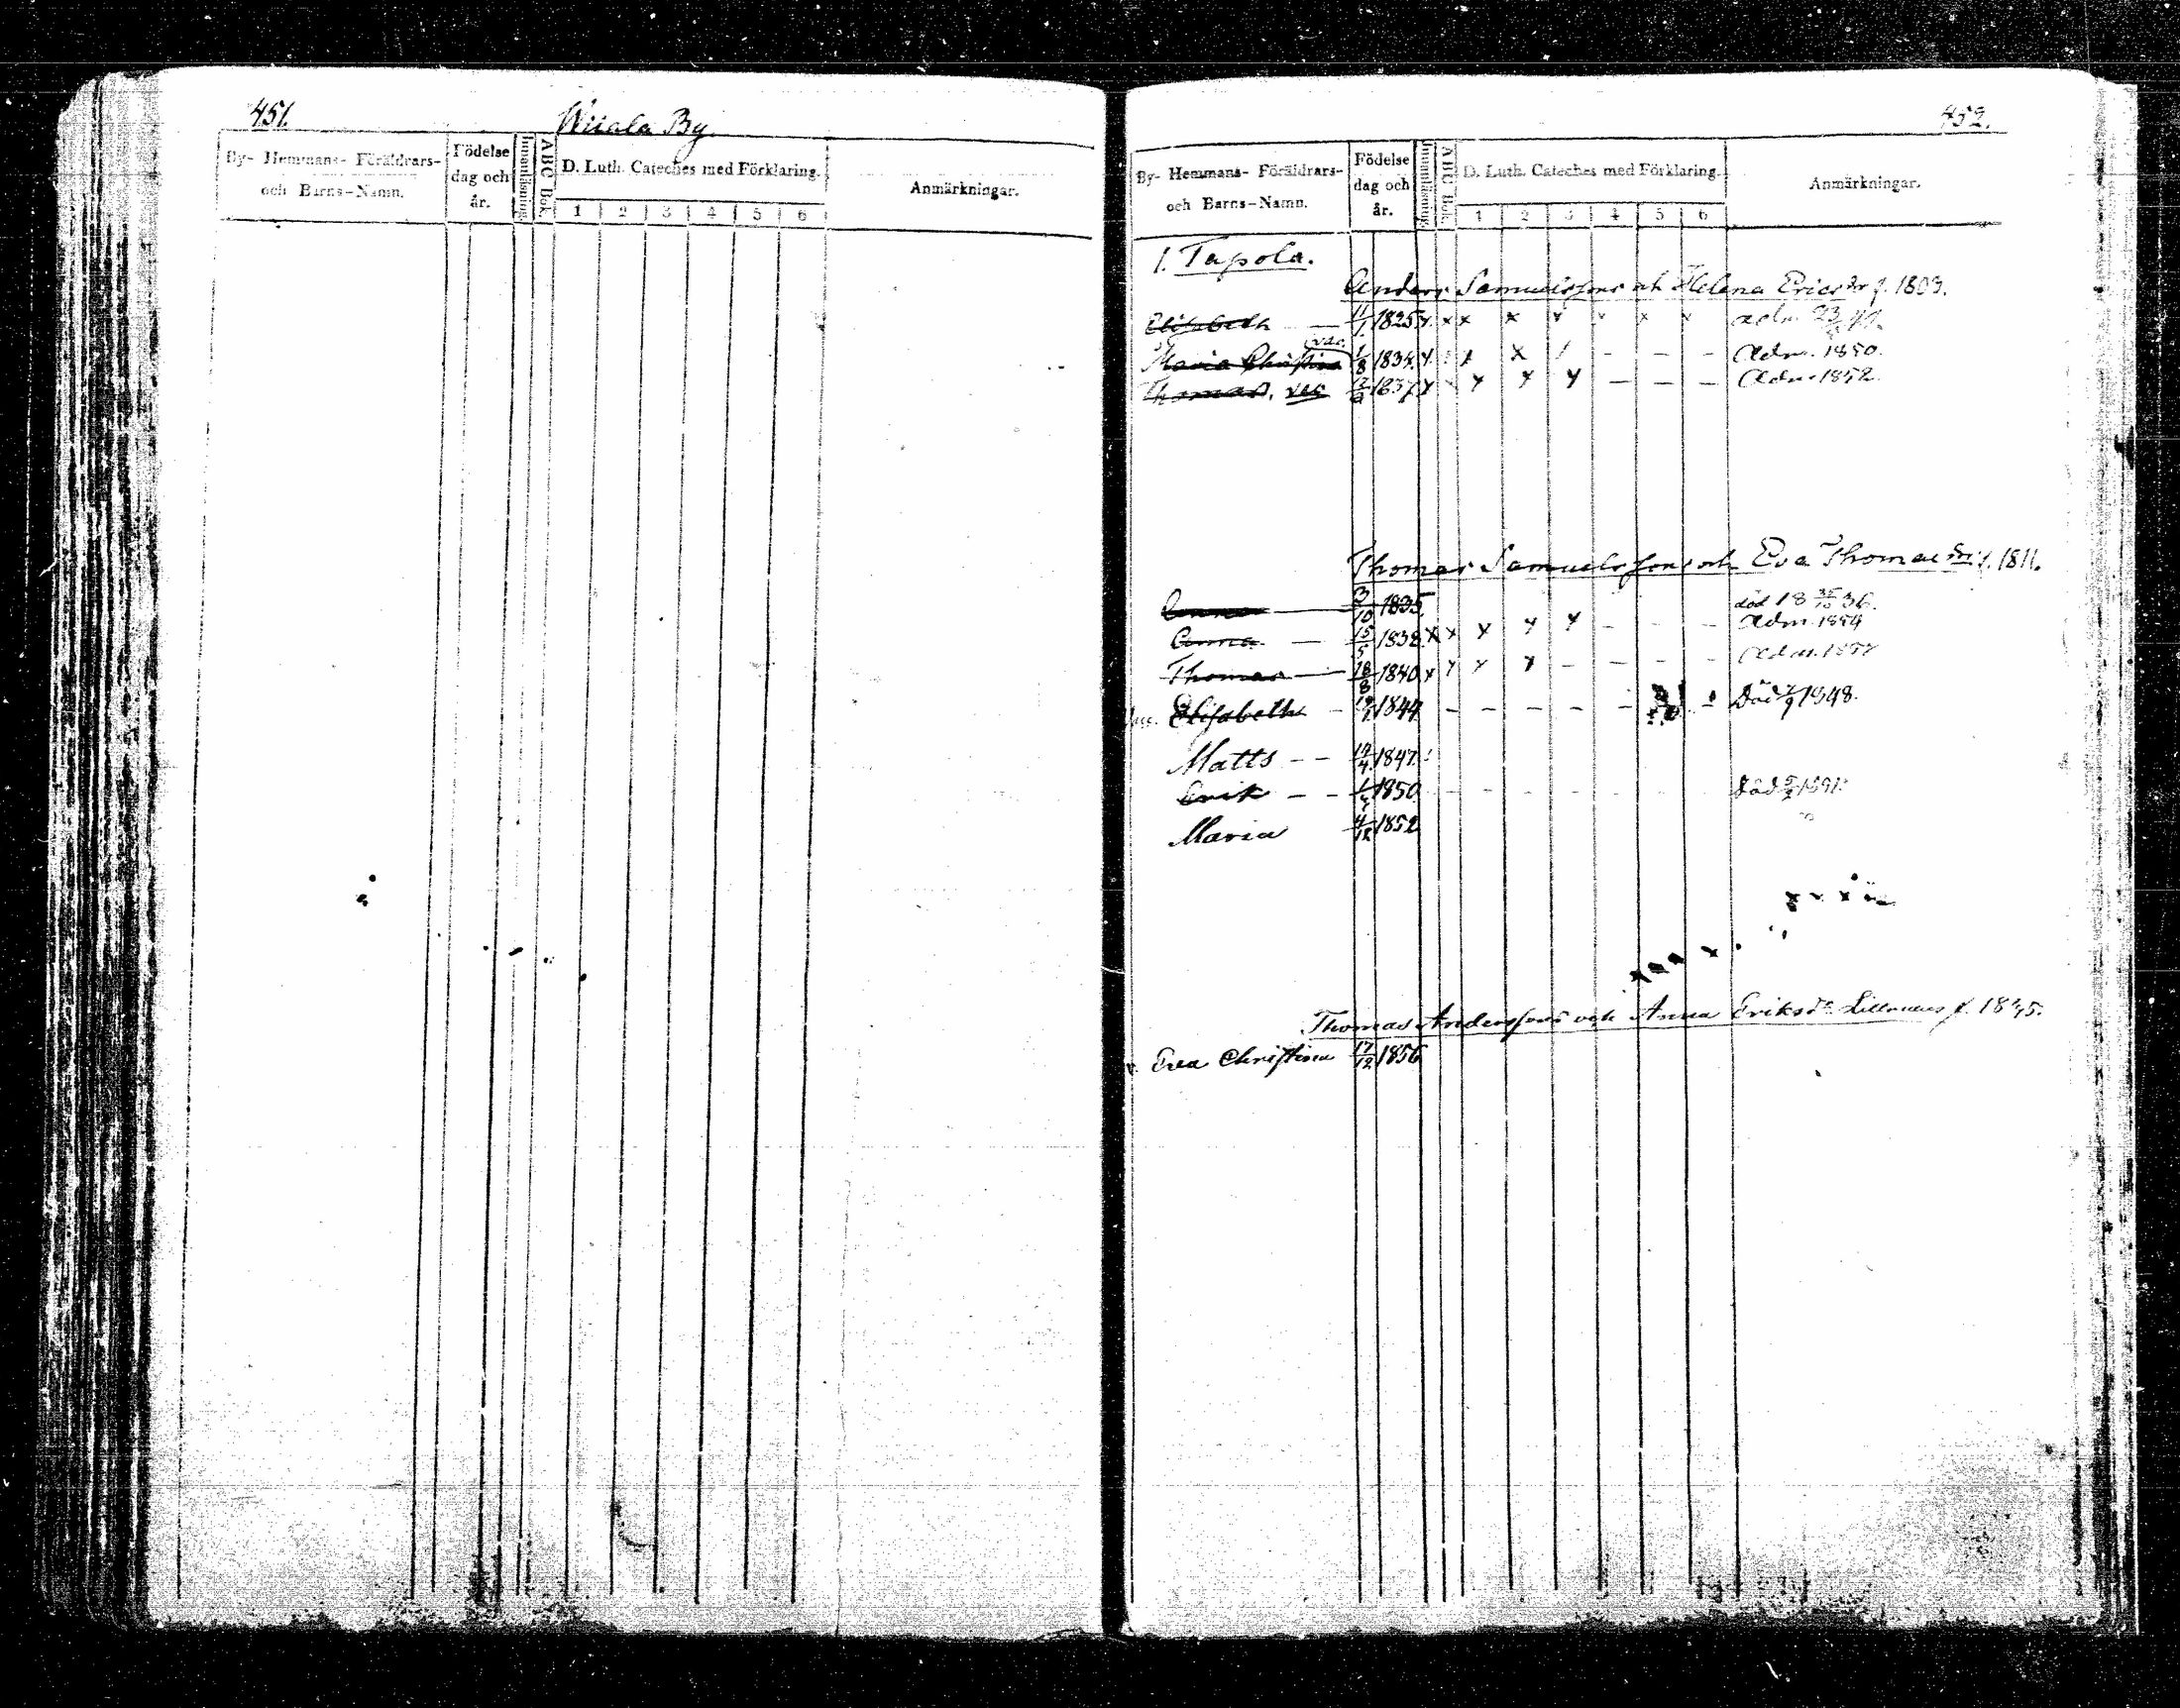 451.
By
By- Hemmans- Föräldrars- och Barns-Namn.
Födelse dag och år.
Innanläsning.
ABC Bok.
D. Luth. Cateches med Förklaring.
1 2 3 4 5 6
Anmärkningar.
452.
By- Hemmans- Föräldrars- och Barns-Namn.
Födelse dag och år.
Innanläsning.
ABC Bok.
D. Luth. Cateches med Förklaring.
1 2 3 4 5 6
Anmärkningar.
1. Tapola.
Anders Samuelssons och Helena Ericsdr f. 1803.
Elisabeth — 11/1 1825 x x x x x x x x adm.
Maria Christina vac. 1/8 1834 x x x / – – – Adm. 1850.
Thomas, vac 1837 x x x x – – – Adm. 1852.
Thomas Samuelssons och Eva Thomasdr f. 1811.
Anna — 3/10 1835 död 36.
Anna — 15/5 1838 x x x x x – – – Adm. 1854
Thomas — 18/8 1840 x x x x – – – – Adm.
Elisabeth – 1844 – – – – – – – Död 1848.
Matts – – 1847
Erik – – 1850 – – – – – – Död
Maria 4/12 1852
Thomas Anderssons och Anna Eriksdr f.
Eva Christina 17/12 1856